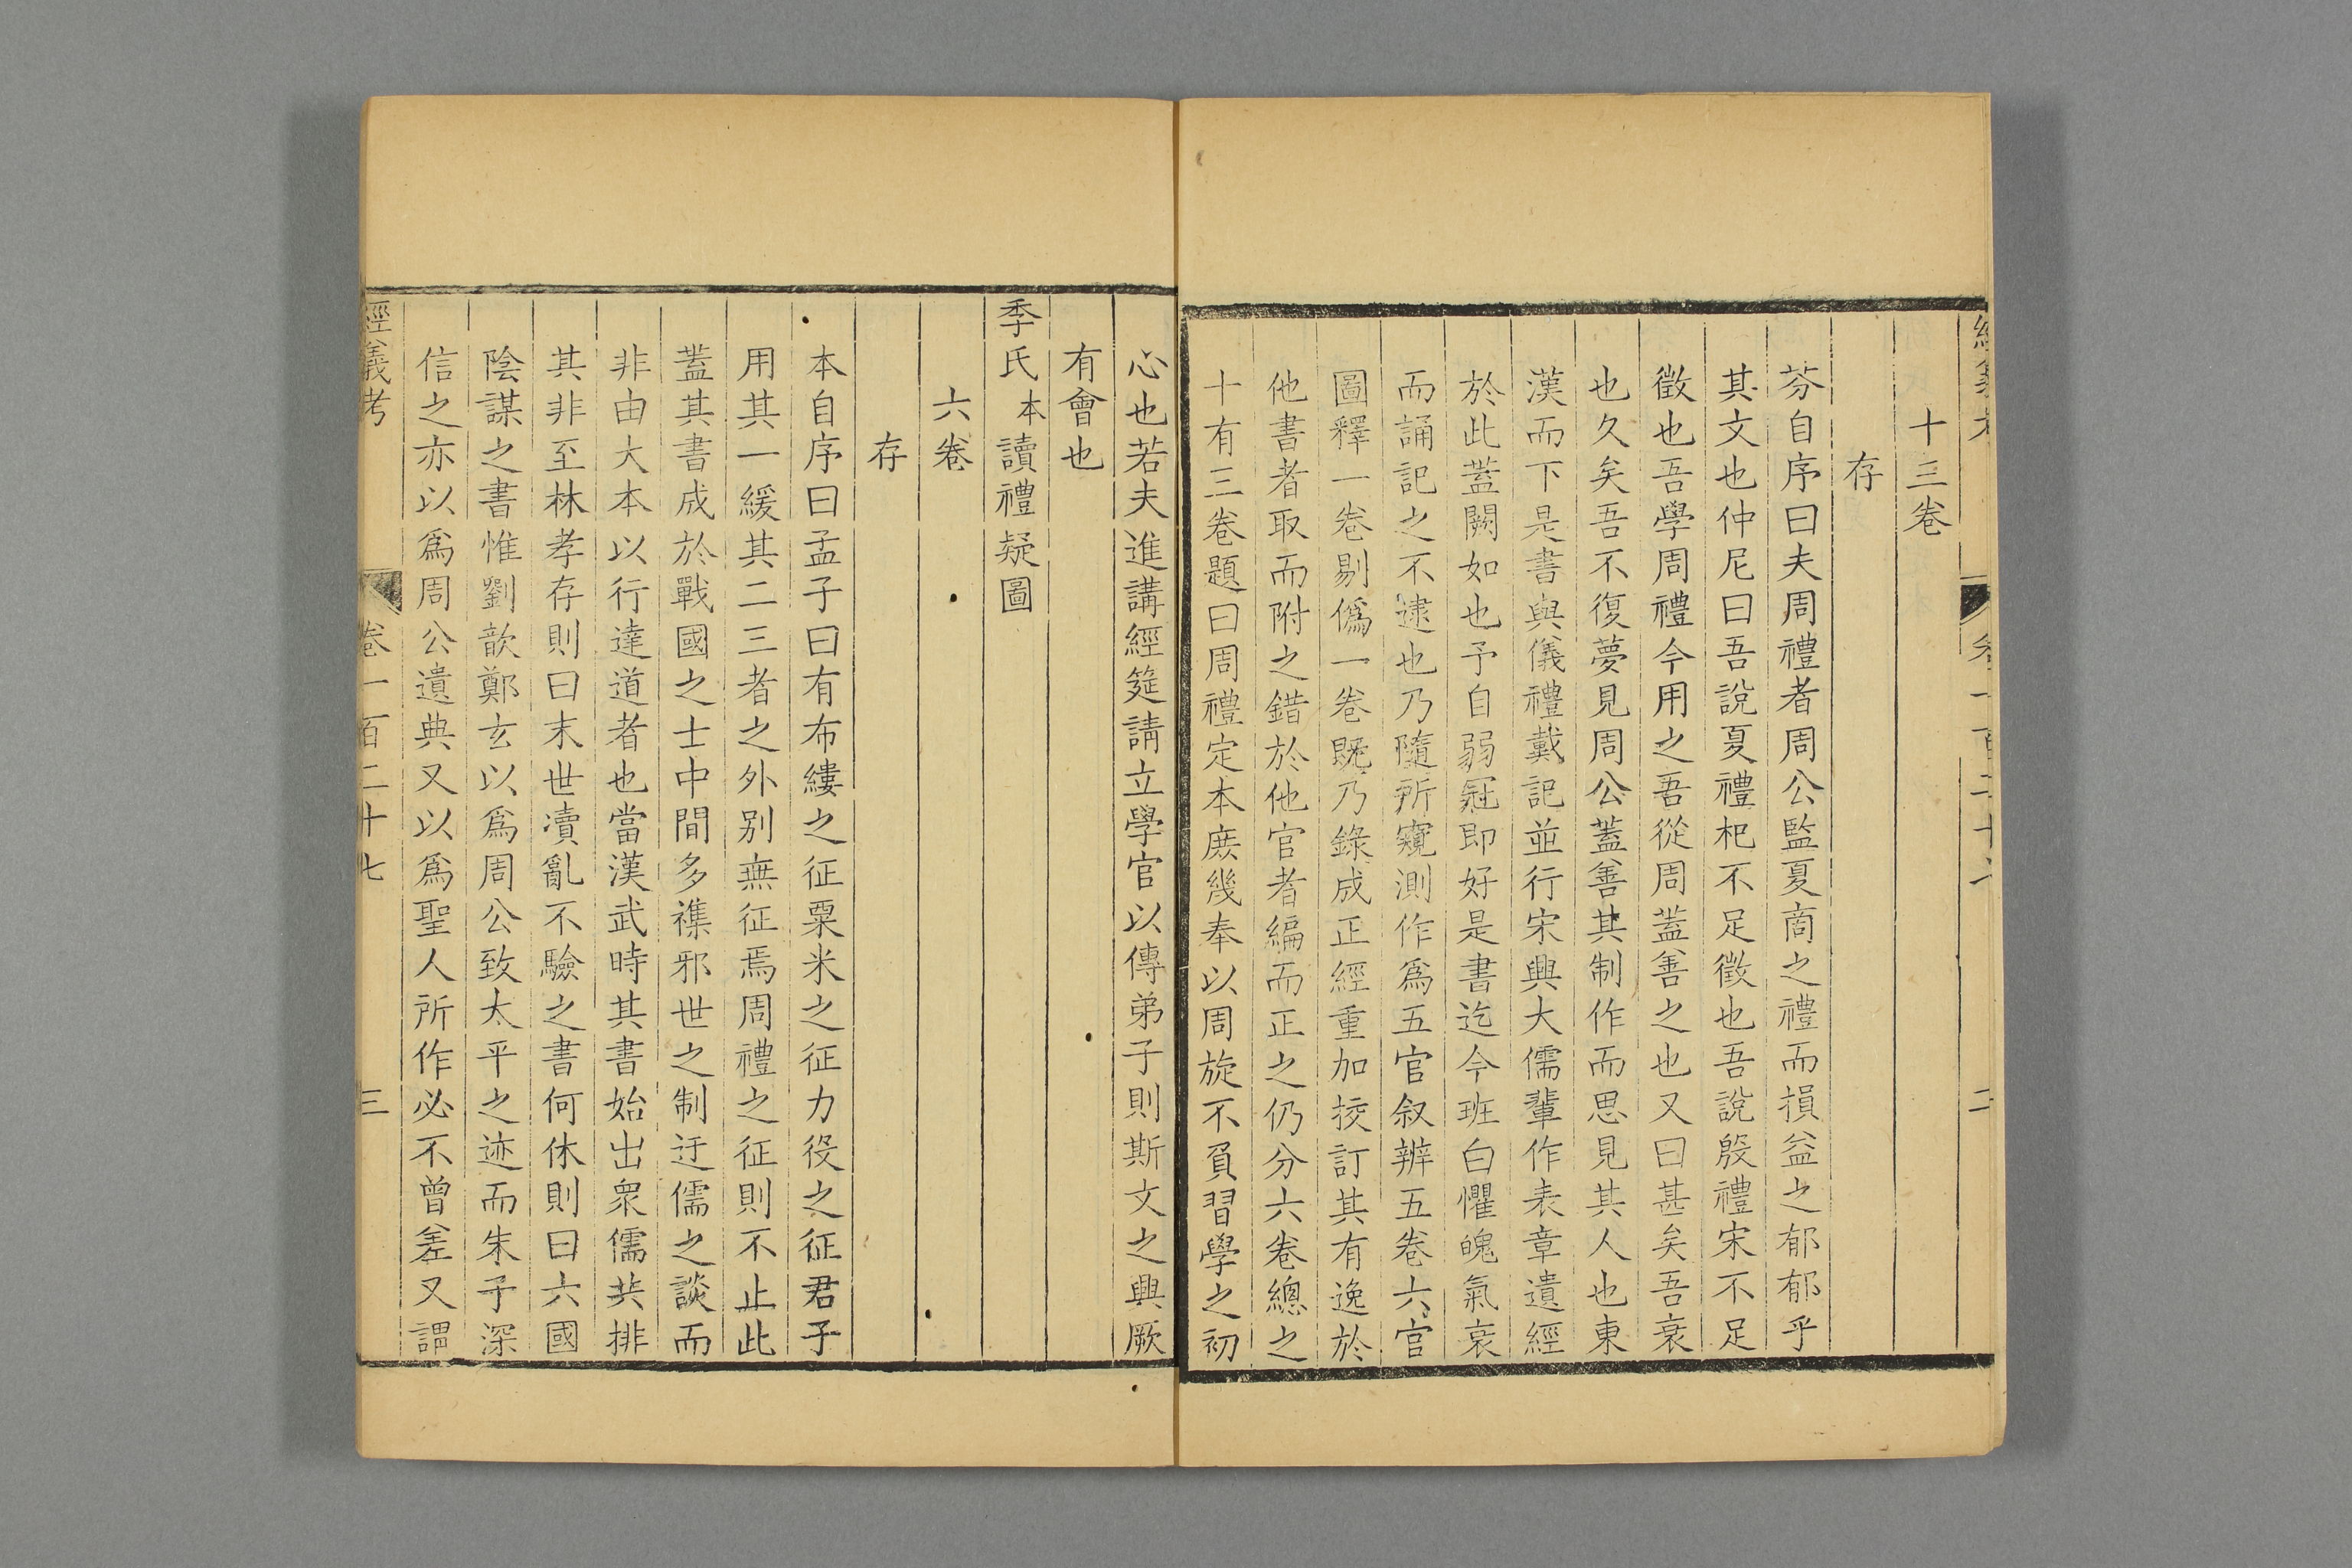 十三卷
存
芬自序曰夫周禮者周公監夏商之禮而損益之郁郁乎
其文也仲尼曰吾說夏禮杞不足徵也吾說殷禮宋不足
徵也吾學周禮今用之吾從周蓋善之也又曰甚矣吾衰
也久矣吾不復夢見周公蓋善其制作而思見其人也東
漢而下是書與儀禮戴記並行宋興大儒輩作表章遺經
於此蓋闕如也予自弱冠即好是書迄今班白懼魄氣衰
而誦記之不逮也乃隨所窺測作爲五官叙辨五卷六官
圖釋一卷剔僞一卷旣乃錄成正經重加挍訂其有逸於
他書者取而附之錯於他官者編而正之仍分六卷總之
十有三卷題曰周禮定本庶幾奉以周旋不負習學之初
心也若夫進講經筵請立學官以傳弟子則斯文之興厥
有會也
季氏本讀禮疑圖
六卷
存
本自序曰孟子曰有布縷之征粟米之征力役之征君子
用其一緩其二三者之外别無征焉周禮之征則不止此
蓋其書成於戰國之士中間多襍邪世之制迂儒之談而
非由大本以行達道者也當漢武時其書始出衆儒共排
其非至林孝存則曰末世凟亂不驗之書何休則曰六國
陰謀之書惟劉歆鄭玄以爲周公致太平之迹而朱子深
信之亦以爲周公遺典又以爲聖人所作必不曾差又謂
經義考 卷一百二十七 三